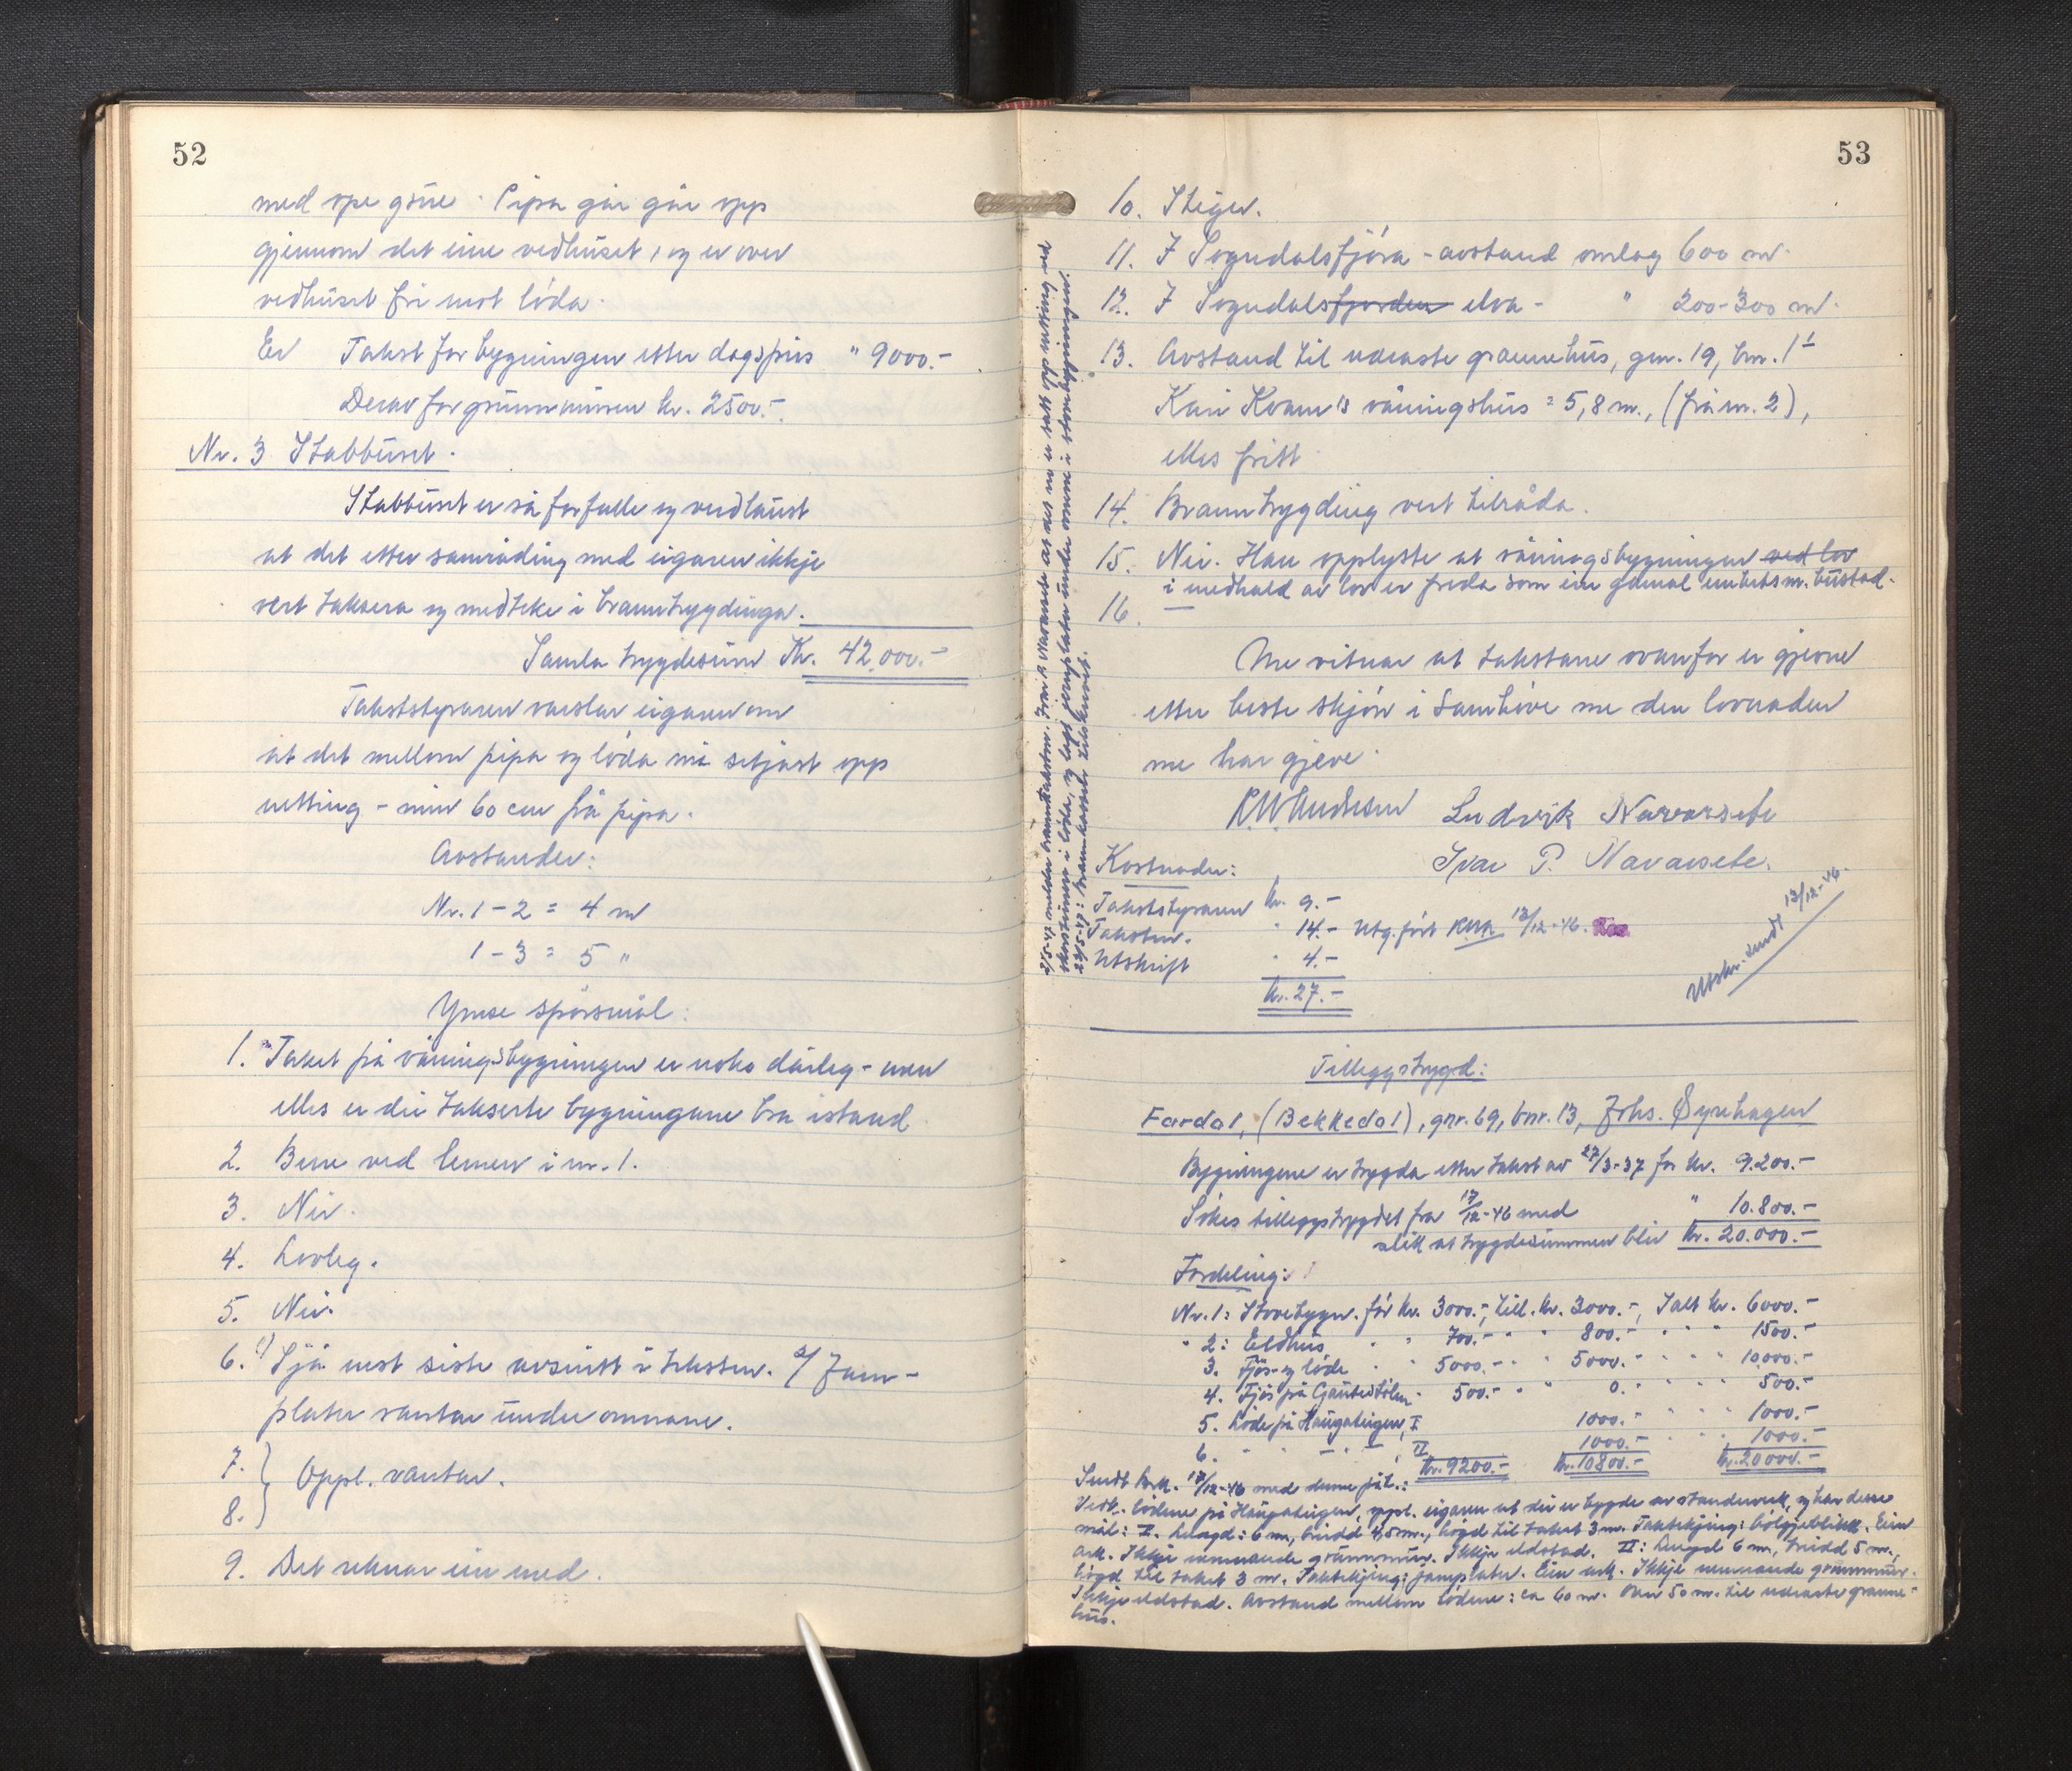 52
med ope grue. Pipa går går opp
gjennom det eine vedhuset, og er over
vedhuset fri mot löda.
Takst for bygningen etter dagspris " 9000.-
Derav for grunnmuren kr. 2500.-
Nr. 3 Stabbuset.
Stabbuset er så forfalle og verdlaust
at det etter samråding med eigaren ikkje
vert taksera og medteke i branntrygdinga.
Samla trygdesum Kr. 42.000.-
Takststyraren varslar eigaren om
at det mellom pipa og löda må setjast opp
netting - min 60 cm frå pipa.
Avstander:
Nr. 1 - 2 = 4 m
1 - 3 = 5 "
Ymse spörsmål:
1. Taket på våningsbygningen er noko dårleg - men
elles er dei takserte bygningane bra istand
2. Bere ved lemen i nr. 1.
3. Nei.
4. Lovleg.
5. Nei.
6. 1) Sjå nest siste avsnitt i taksten. 2) Jarn-
plater vantar under omnane.
7. } Oppl. vantar.
8. }
9. Det reknar ein med.
53
10. Stiger.
11. I Sogndalsfjöra - avstand omlag 600 m.
12. I Sogndalsfjorden elva - " 200-300 m.
13. Avstand til næraste grannehus, gnr. 19, bnr. 1
Kari Kvam's våningshus = 5,8 m., (frå nr. 2),
elles fritt
14. Branntrygding vert tilråda.
15. Nei. Han opplyste at våningsbygningen ved lov
i medhald av lov er freda som ein gamal embetsm. bustad.
16. —
Me vitnar at takstane ovanfor er gjevne
etter beste skjön i samhöve me den lovnaden
me har gjeve.
Ludvik Navarsete
Ivar P. Navarsete.
Kostnader:
Takststyraren kr. 9.-
Takstm. " 14.- Utg. fört 13/12-46.
Utskrift " 4.-
Kr. 27.-
Utskr. sendt 13/12-46.
Tilleggstrygd:
Fardal, (Bekkedal), gnr. 69, bnr. 13, Johs. Öyrehagen
Bygningene er trygda etter takst av 27/3-37 for kr. 9.200.-
Sökes tilleggstrygdet fra 17/12-46 med " 10.800.-
slik at trygdesummen blir kr. 20.000.-
Fordeling:
Nr. 1: Stovebygn. för kr. 3000.-, till. kr. 3000.-, Ialt kr. 6000.-
" 2: Eldhus " " 700.- " " 800.- " " " 1500.-
3. Fjös- og löde " " 5000.- " " 5000.- " " " 10.000.-
4. Fjös på Gautestölen " 500.- " " 0. " " " " 500.-
5. Löde på Haugateigen, I 1000.- " " " 1000.-
6. " " " II 1000.- " " " 1000.-
Kr. 9200.- Kr. 10800.- Kr. 20000.-
Sendt brk. 17/12-46 med denne påt.:
Vedk. lödene på Haugateigen, oppl. eigaren at dei er bygde av standerverk, og har desse
mål: I. Lengd: 6 m, breidd 4,5 m., högd til taket 3 m. Taktekjing: bölgjeblikk. Ein
ark. Ikkje nemnande grunnmur. Ikkje eldstad. II: Lengd 6 m, breidd 5 m.,
högd til taket 3 m. Taktekjing: jarnplater. Ein ark. Ikkje nemnande grunnmur.
Ikkje eldstad. Avstand mellom lödene: ca 60 m. Over 50 m. til næraste granne-
hus.